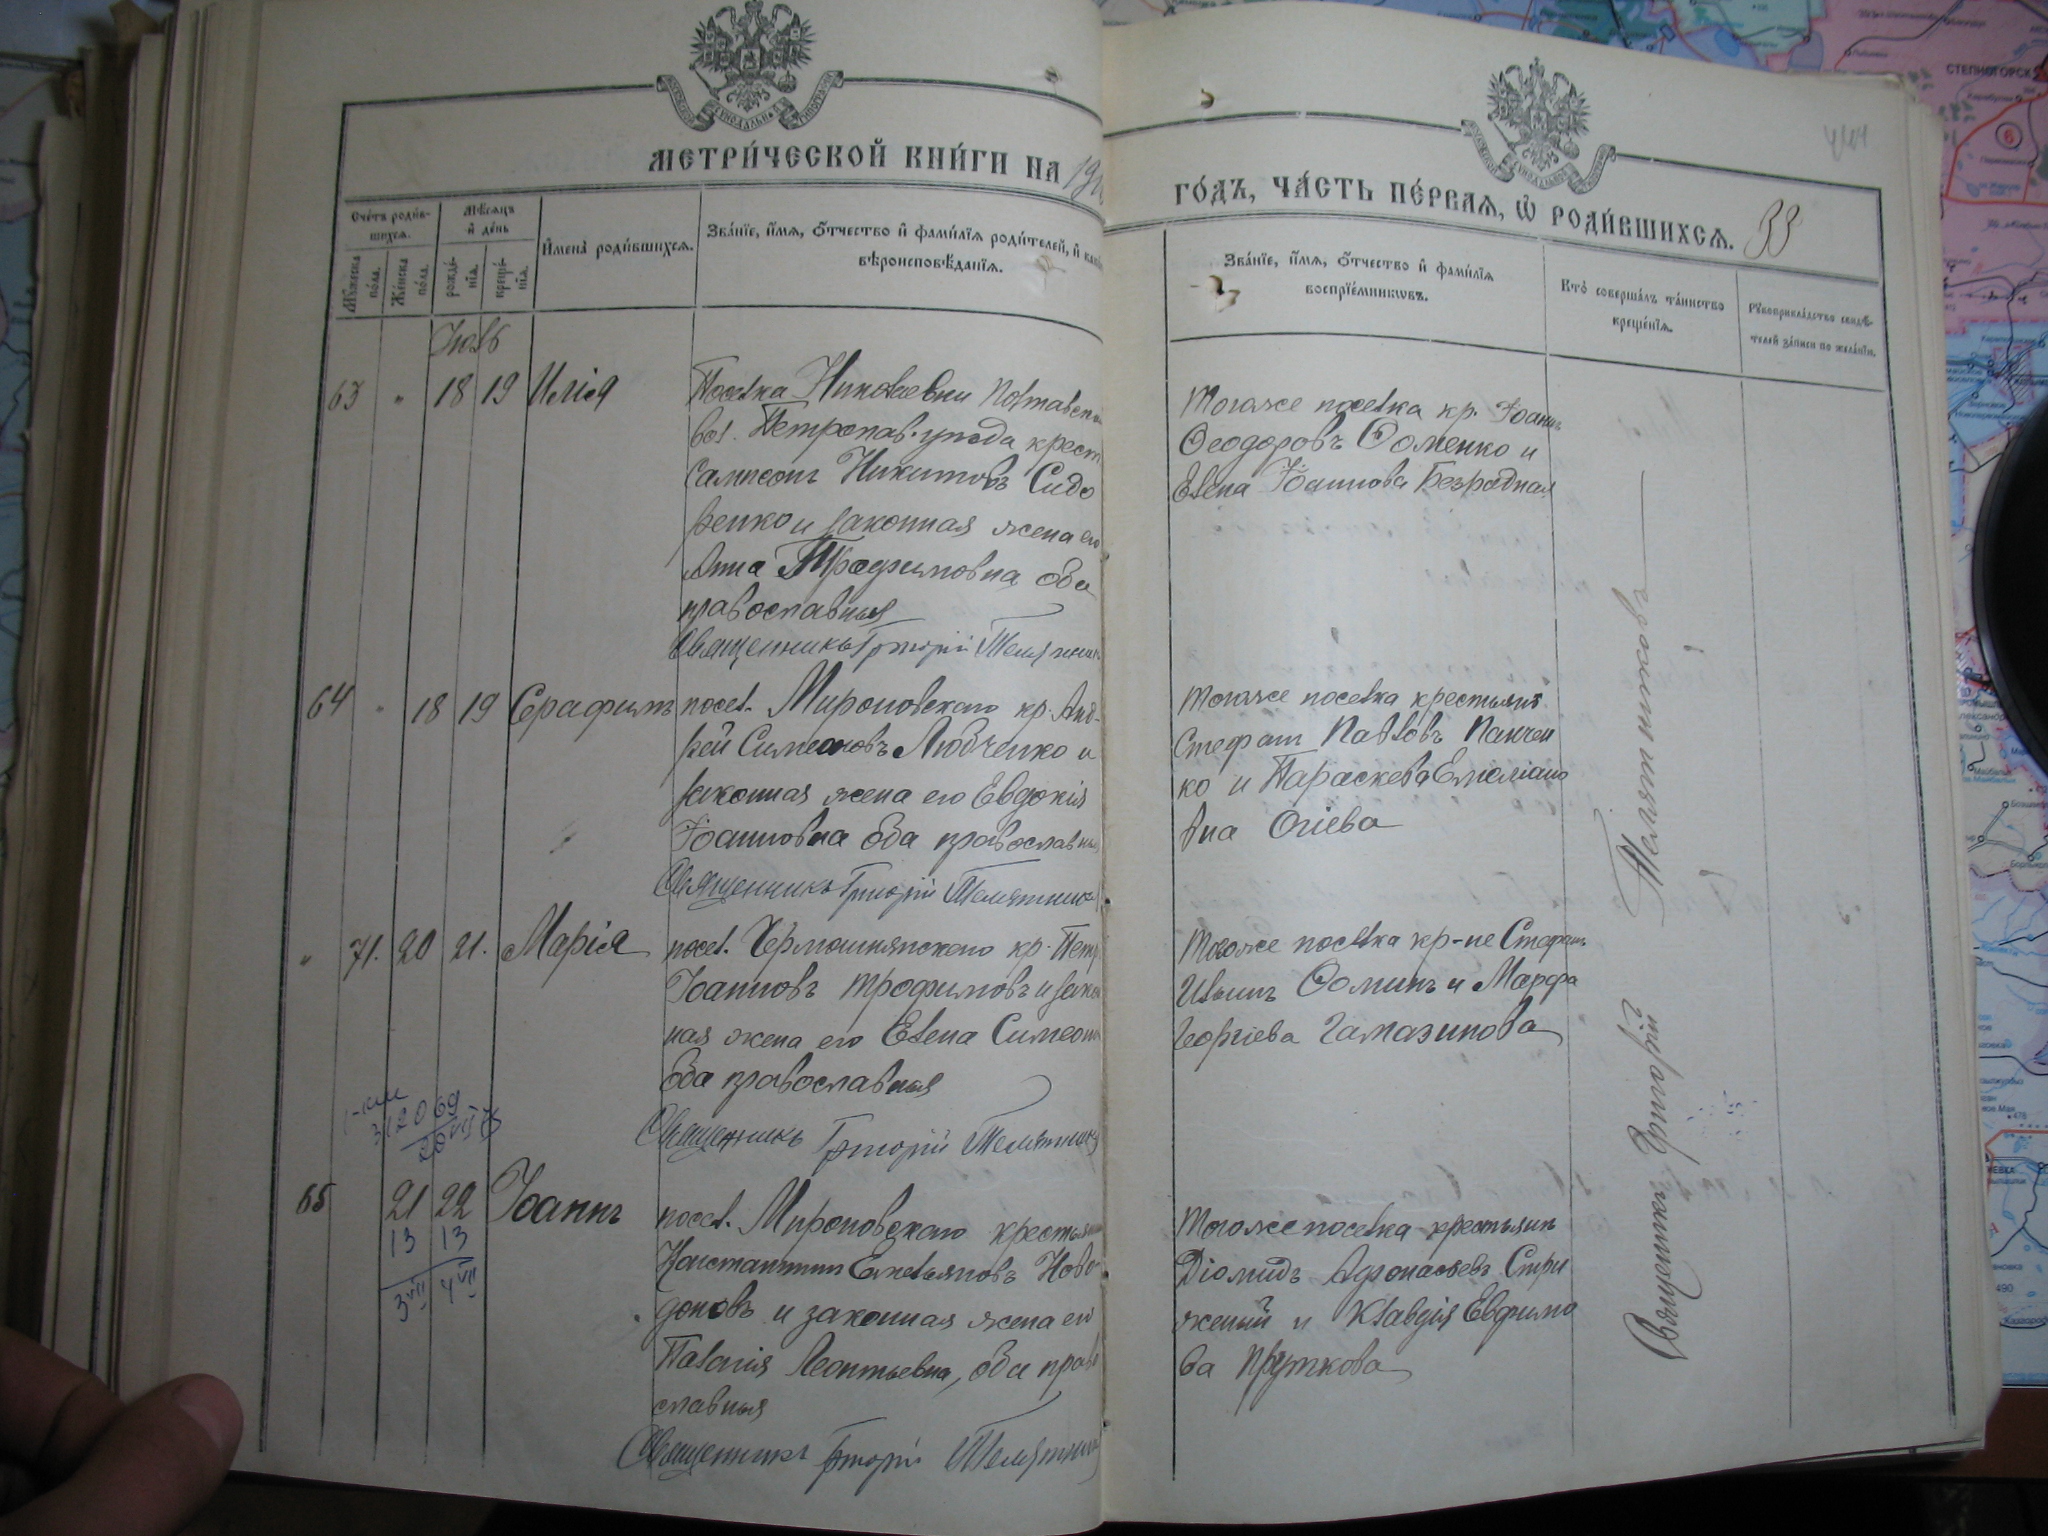 МЕТРИ́ЧЕСКОЙ КНИ́ГИ НА
ГО́ДЪ, ЧА́СТЬ ПЕ́РВАЯ, Ѡ РОДИ́ВШИХСЯ.
33
Сче́тъ роди́в-
шихся.
Мѣ́сяцъ
и де́нь
Му́жеска
по́ла.
Же́нска
по́ла.
рожде́-
нія.
креще́-
нія.
Имена̀ роди́вшихся.
Зва́ніе, и́мя, о́тчество и фами́лія роди́телей, и
вѣроисповѣ́данія.
Зва́ніе, и́мя, о́тчество и фами́лія
воспріе́мниковъ.
Кто̀ соверша́лъ та́инство
креще́нія.
Рукоприкла́дство свидѣ́-
телей за́писи по жела́нію.
Іюль
63 " 18 19 Илія
Поселка Николаевки Полтавской
вол. Петропав. уѣзда крест
Сампсонъ Никитовъ Сидо
ренко и законная жена его
Анна Трофимовна, оба
православныя
Священникъ Григорій Телятник
Тогоже поселка кр. Іоаннъ
Ѳеодоровъ Ѳоменко и
Елена Іоаннова Безродная
64 " 18 19 Серафимъ
посел. Мироновскаго кр. Анд-
рей Симеоновъ Любченко и
законная жена его Евдокія
Іоанновна оба православныя
Священникъ Григорій Телятников
Тогоже поселка крестьянъ
Стефанъ Павловъ Панчен
ко и Параскева Емеліано
вна Огіева
" 71. 20 21. Марія
посел. Чермошнянскаго кр. Петръ
Іоанновъ Трофимовъ и закон
ная жена его Елена Симеон
оба православныя
Священникъ Григорій Телятник
Тогоже поселка кр-не Стефанъ
Ильинъ Ѳоминъ и Марфа
Георгіева Гамазинова
312069
65 21 22 Іоаннъ
13 13
3 VII 4 VII
посел. Мироновскаго крестьянинъ
Константинъ Емельяновъ Ново-
доновъ и законная жена его
Пелагія Леонтьевна, оба право
славныя
Священникъ Григорій Телятник
Тогоже поселка крестьянъ
Діомидъ Аѳонасьевъ Стри
женый и Клавдія Евфимо
ва Пруткова
Священникъ Григорій Телятниковъ